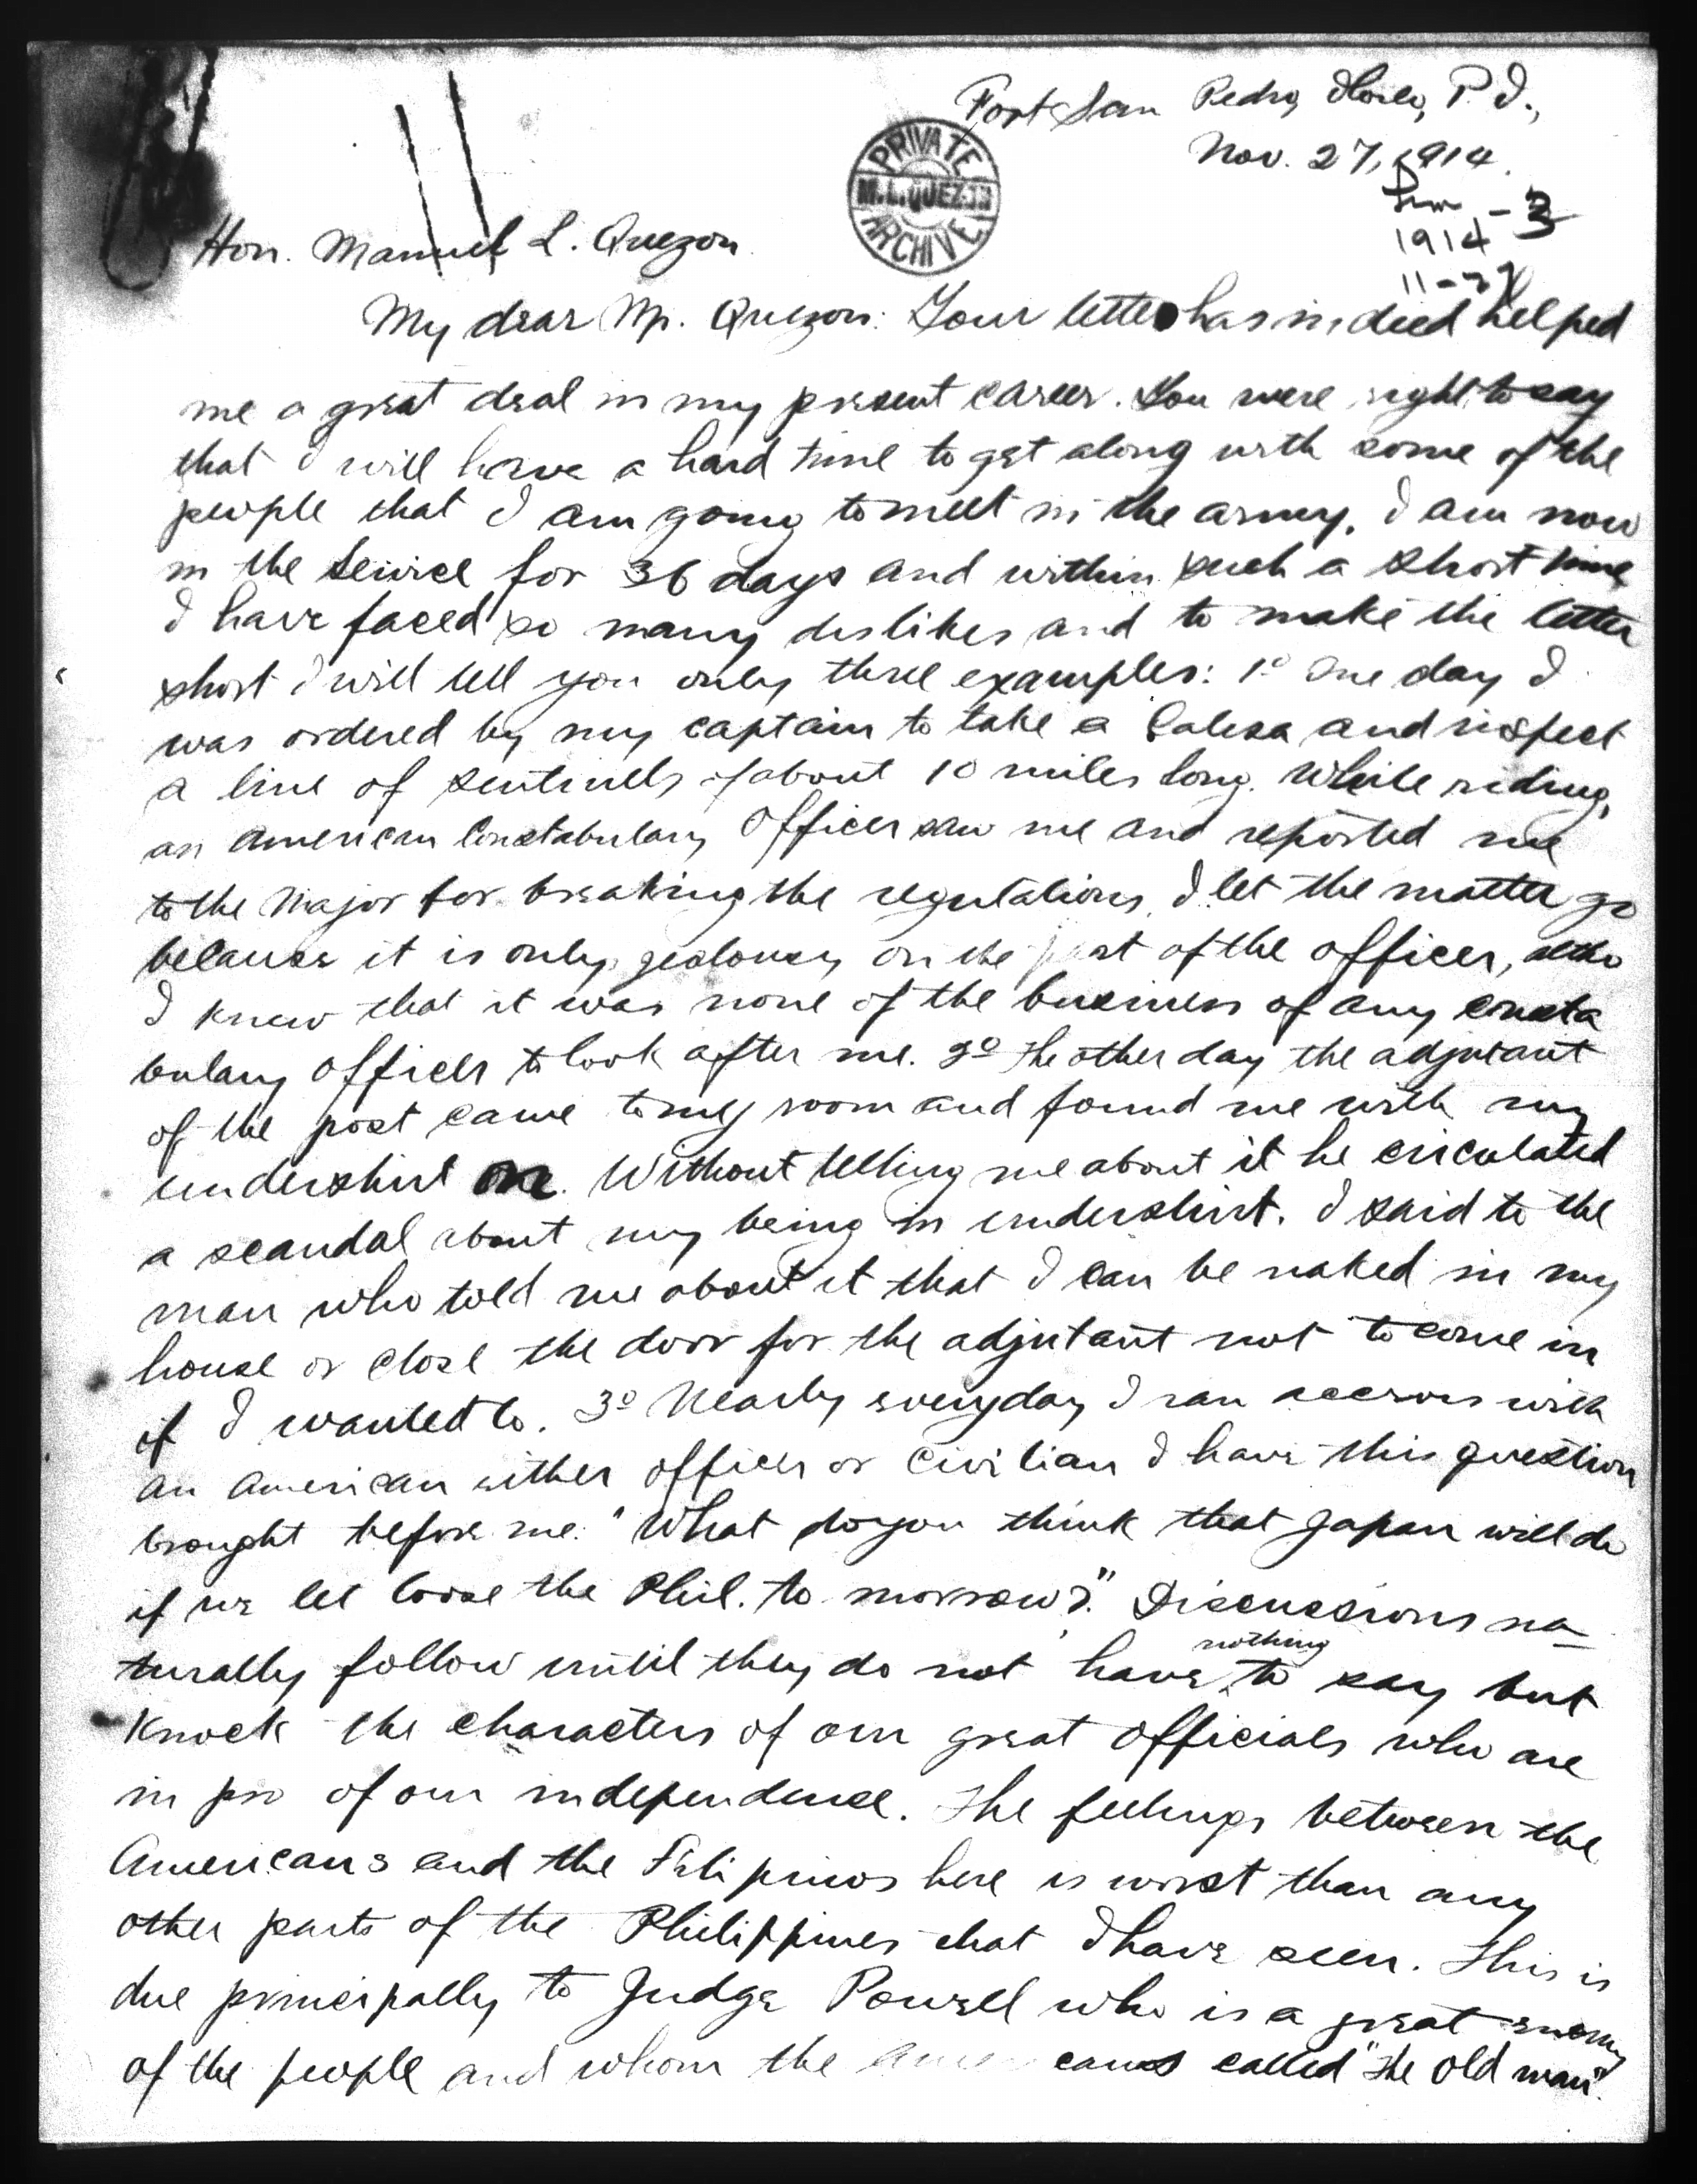 Fort San Pedro, Iloilo, P.I.,
Nov. 27, 1914.
PRIVATE
M.L.QUEZON
ARCHIVE
- 3
1914
11-27
Hon. Manuel L. Quezon.
My dear Mr. Quezon: Your letter has indeed helped
me a great deal in my present career. You were right to say
that I will have a hard time to get along with some of the
people that I am going to meet in the army. I am now
in the service for 36 days and within such a short time
I have faced so many dislikes and to make the letter
short I will tell you only three examples: 1º One day I
was ordered by my captain to take a Calesa and inspect
a line of sentinels of about 10 miles long. While riding,
an American Constabulary Officer saw me and reported me
to the Major for breaking the regulations. I let the matter go
because it is only jealousy on the part of the officer, altho
I knew that it was none of the business of any consta
bulary officer to look after me. 2º The other day the adjutant
of the post came to my room and found me with my
undershirt on. Without telling me about it he circulated
a scandal about my being in undershirt. I said to the
man who told me about it that I can be naked in my
house or close the door for the adjutant not to come in
if I wanted to. 3º Nearly everyday I ran accross with
an American either officer or civilian I have this question
brought before me: "What do you think that Japan will do
if we let loose the Phil. to morrow?." Discussions na-
turally follow until they do not have nothing to say but
knock the characters of our great officials who are
in pro of our independence. The feelings between the
Americans and the Filipinos here is worst than any
other parts of the Philippines that I have seen. This is
due principally to Judge Powell who is a great enemy
of the people and whom the Americans called "The old man".